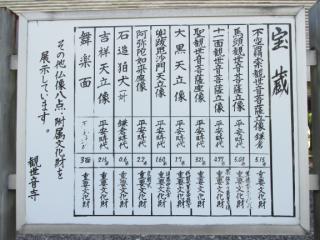 宝蔵
不空羂索観世音菩薩立像 鎌倉 重要文化財
馬頭観世音菩薩立像 平安時代 重要文化財
十一面観世音菩薩立像 平安時代 重要文化財
聖観世音菩薩坐像 平安時代 重要文化財
大黒天立像 平安時代 重要文化財
兜跋毘沙門天立像 平安時代 重要文化財
阿弥陀如来座像 平安時代 重要文化財
石造狛犬 一対 鎌倉時代 重要文化財
吉祥天立像 平安時代 重要文化財
舞楽面 3面 重要文化財
その他仏像八点、附属文化財を
展示しています。
観世音寺